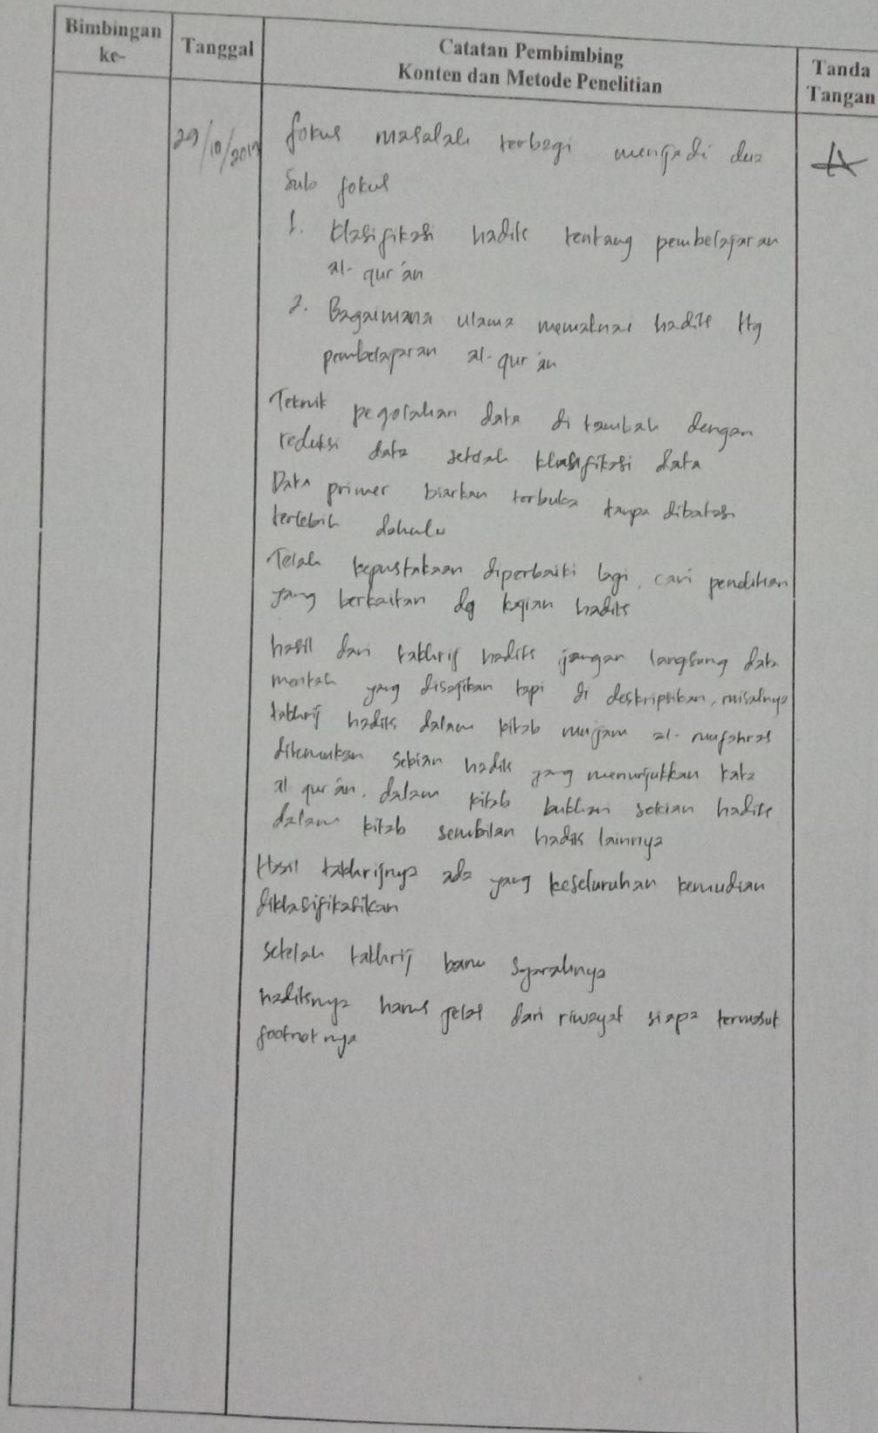 Bimbingan
ke-
Tanggal
Catatan Pembimbing
Konten dan Metode Penelitian
Tanda
Tangan
29/10/2019
fokus masalah terbagi menjadi dua
Sub fokus
1. klasifikasi hadits tentang pembelajaran
al-qur'an
2. Bagaimana ulama memaknai hadits ttg
pembelajaran al-qur'an
Teknik pegolahan data di tambah dengan
reduksi data setelah klasifikasi data
Data primer biarkan terbuka tanpa dibatasi
terlebih dahulu
Telah kepustakaan diperbaiki lagi, cari
yang berkaitan dg kajian hadits
hasil dari takhrij hadits jangan langsung data
mentah yang disajikan tapi di deskripsikan, misalnya
takhrij hadits dalam kitab mujam al-mufahras
dikemukan sekian hadits yang menunjukkan kata
al qur'an. dalam kitab bukhari sekian hadits
dalam kitab sembilan hadis lainnya
Hasil takhrijnya ada yang keseluruhan kemudian
diklasifikasikan
setelah takhrij baru syarahnya
haditsnya harus jelas dari riwayat siapa termasuk
footnot nya